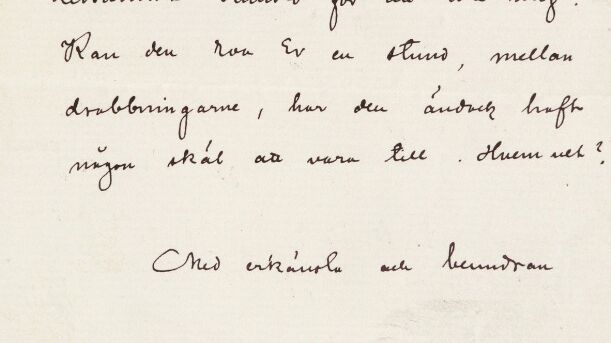 för att
Kan den roa Er en stund, mellan
drabbningarne, har den ändock haft
någon skäl att vara till. Hvem vet?
Med erkänsla och beundran